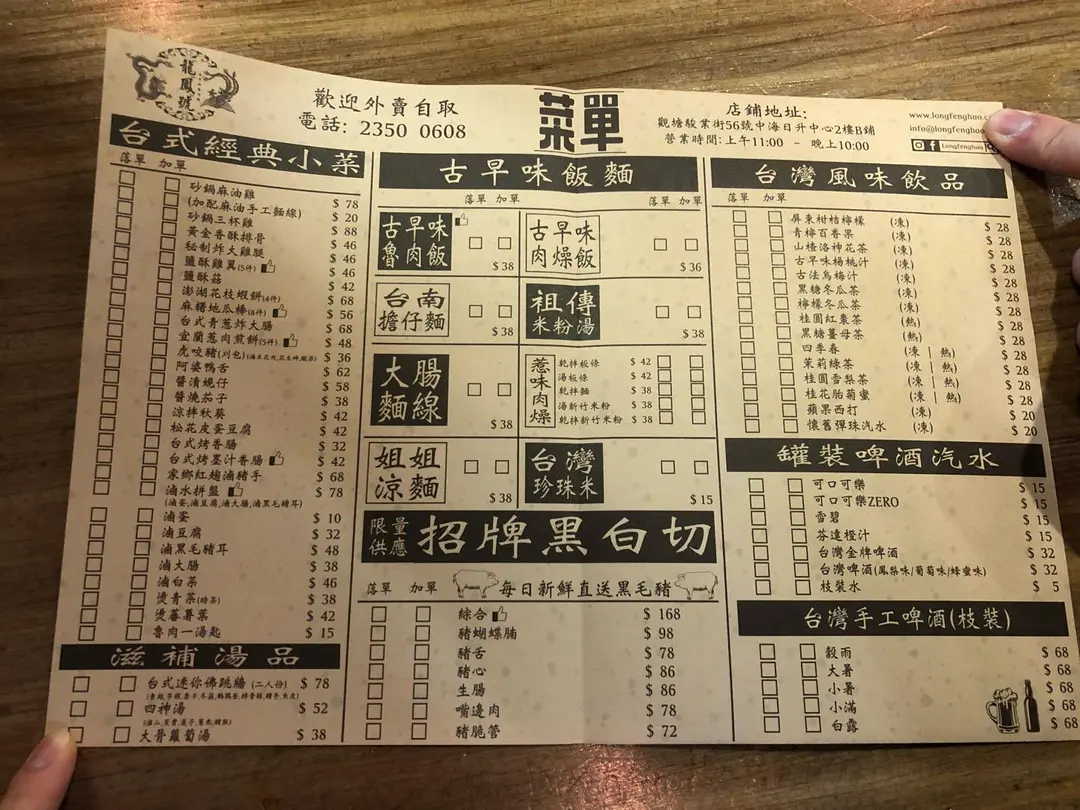 龍鳳號
歡迎外賣自取
電話: 2350 0608
菜單
店鋪地址:
觀塘駿業街56號中海日升中心2樓B鋪
營業時間:上午11:00 - 晚上10:00
www.longfenghao.c
info@longfenghao
Longfenghao
台式經典小菜
落單 加單
砂鍋麻油雞 $ 78
(加配麻油手工麵線) $ 20
砂鍋三杯雞 $ 88
黃金香酥排骨 $ 46
秘制炸大雞腿 $ 46
鹽酥雞翼(5件) $ 46
鹽酥菇 $ 42
澎湖花枝蝦餅(4件) $ 68
麻糬地瓜棒(6件) $ 56
台式青蔥炸大腸 $ 68
宜蘭蔥肉煎餅(5件) $ 48
虎咬豬(刈包) $ 36
阿婆鴨舌 $ 62
醬漬蜆仔 $ 58
醬燒茄子 $ 38
涼拌秋葵 $ 42
松花皮蛋豆腐 $ 42
台式烤香腸 $ 32
台式烤墨汁香腸 $ 42
家鄉紅麴滷豬手 $ 68
滷水拼盤 $ 78
(滷蛋,滷豆腐,滷大腸,滷黑毛豬耳)
滷蛋 $ 10
滷豆腐 $ 32
滷黑毛豬耳 $ 48
滷大腸 $ 38
滷白菜 $ 46
燙青菜(時菜) $ 38
燙蕃薯菜 $ 42
魯肉一湯匙 $ 15
滋補湯品
台式迷你佛跳牆 (二人份) $ 78
四神湯 $ 52
大骨蘿蔔湯 $ 38
古早味飯麵
落單 加單 落單 加單
古早味
魯肉飯
$ 38
古早味
肉燥飯
$ 36
台南
擔仔麵
$ 38
祖傳
米粉湯
$ 38
大腸
麵線
$ 38
惹味肉燥
乾拌板條 $ 42
湯板條 $ 42
乾拌麵 $ 38
湯新竹米粉 $ 38
乾拌新竹米粉 $ 38
姐姐
涼麵
$ 38
台灣
珍珠米
$ 15
限量
供應
招牌黑白切
落單 加單 每日新鮮直送黑毛豬
綜合 $ 168
豬蝴蝶腩 $ 98
豬舌 $ 78
豬心 $ 86
生腸 $ 86
嘴邊肉 $ 78
豬脆管 $ 72
台灣風味飲品
落單 加單
屏東柑桔檸檬 (凍) $ 28
青檸百香果 (凍) $ 28
山楂洛神花茶 (凍) $ 28
古早味楊桃汁 (凍) $ 28
古法烏梅汁 (凍) $ 28
黑糖冬瓜茶 (凍) $ 28
檸檬冬瓜茶 (凍) $ 28
桂圓紅棗茶 (熱) $ 28
黑糖薑母茶 (熱) $ 28
四季春 (凍 | 熱) $ 28
茉莉綠茶 (凍 | 熱) $ 28
桂圓雪梨茶 (凍 | 熱) $ 28
桂花胎菊蜜 (凍 | 熱) $ 28
蘋果西打 (凍) $ 20
懷舊彈珠汽水 (凍) $ 20
罐裝啤酒汽水
可口可樂 $ 15
可口可樂ZERO $ 15
雪碧 $ 15
芬達橙汁 $ 15
台灣金牌啤酒 $ 32
台灣啤酒(鳳梨味/葡萄味/蜂蜜味) $ 32
枝裝水 $ 5
台灣手工啤酒(枝裝)
穀雨 $ 68
大暑 $ 68
小暑 $ 68
小滿 $ 68
白露 $ 68